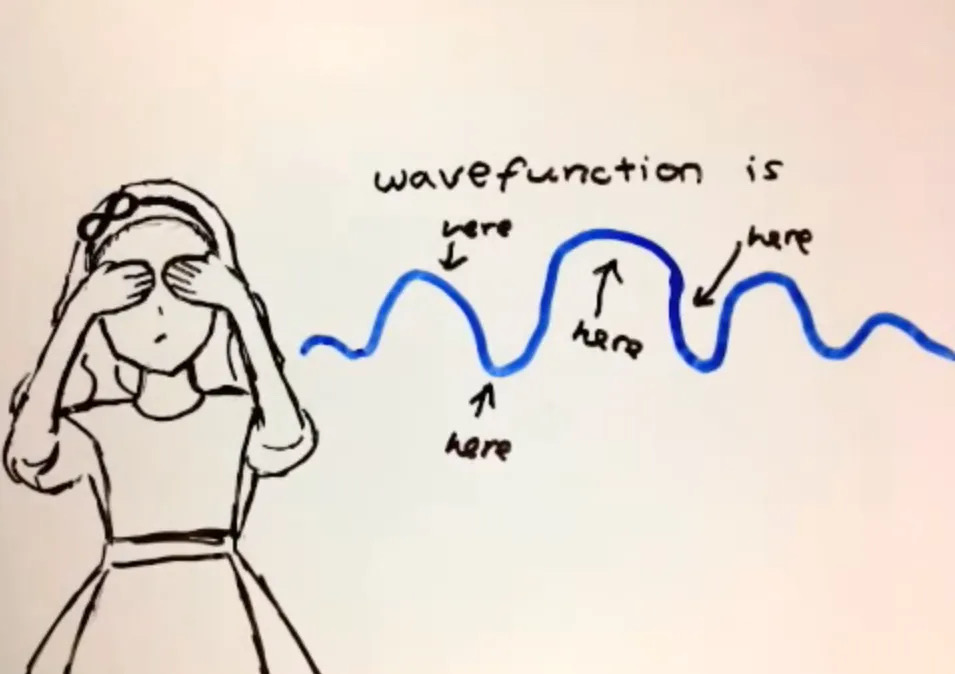 wavefunction is
here
here
here
here